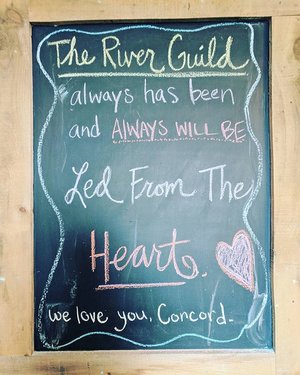 The River Guild
always has been
and ALWAYS WILL BE
Led From The
Heart.
we love you, Concord-